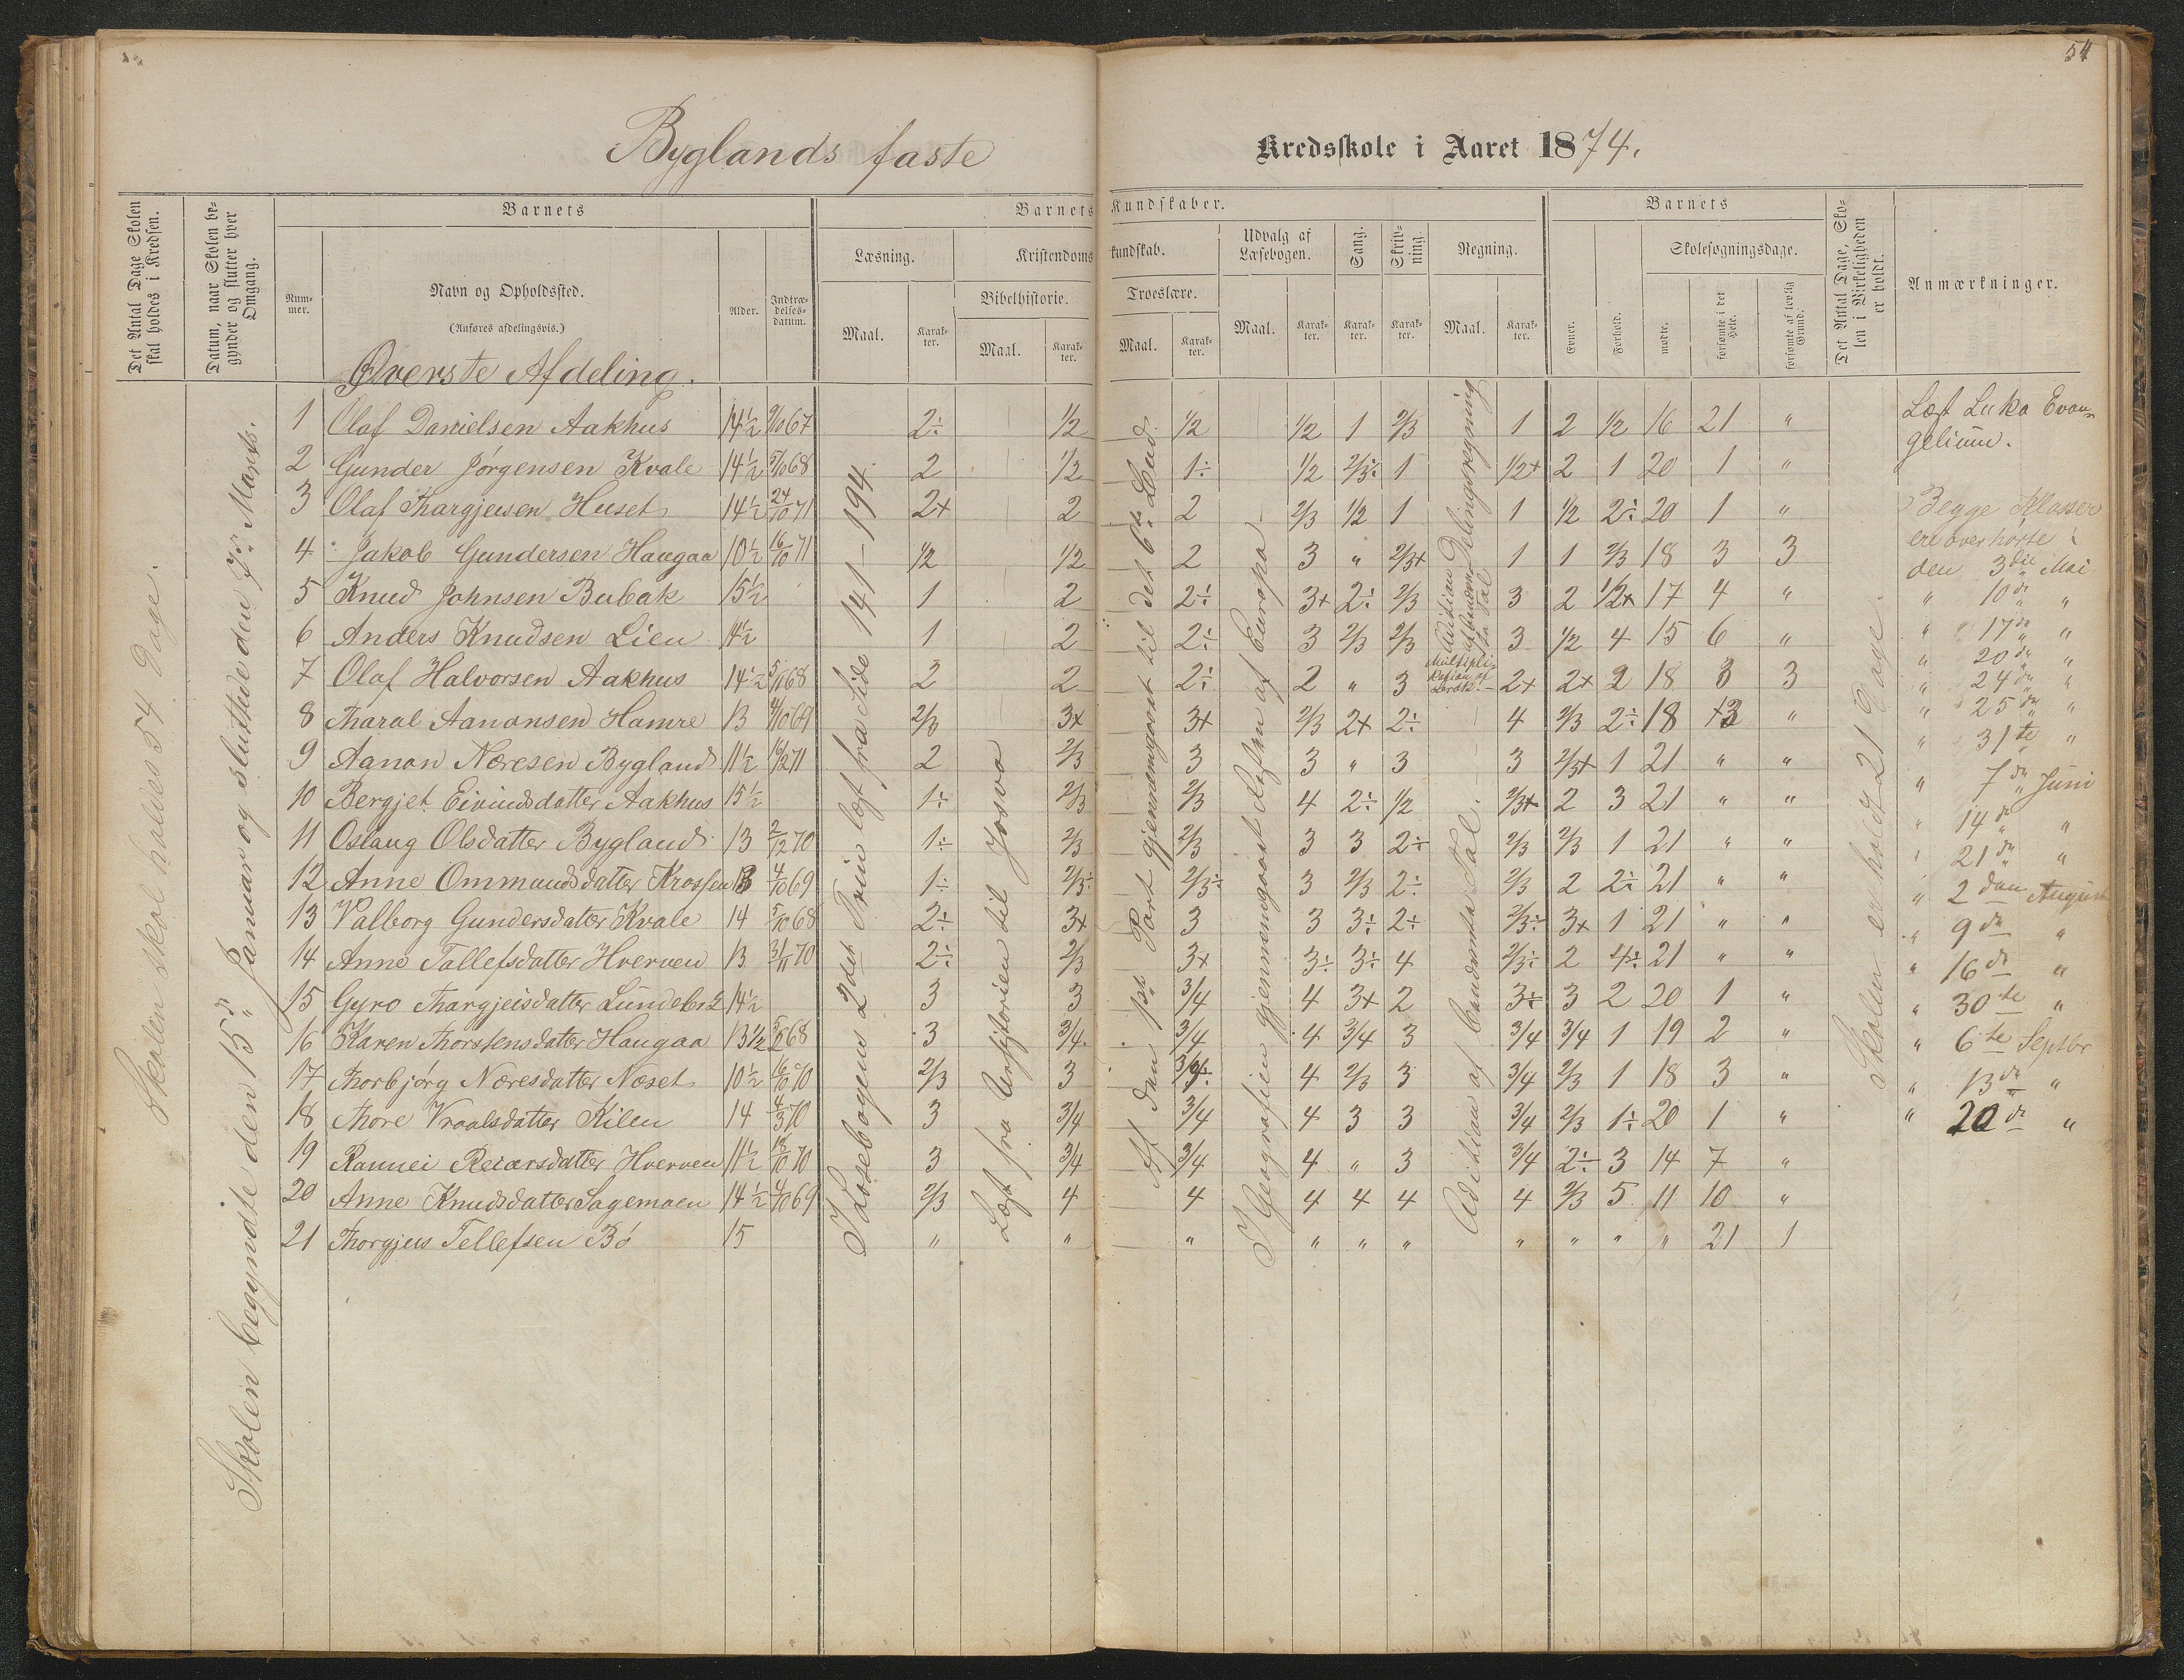 54
Byglands faste Kredsskole i Aaret 1874.
Det Antal Dage Skolen skal holdes i Kredsen.
Datum, naar Skolen begynder og slutter hver Omgang.
Barnets
Nummer.
Navn og Opholdssted.
(Anføres afdelingsvis.)
Alder.
Indtrædelsesdatum.
Barnets Kundskaber.
Læsning.
Maal.
Karakter.
Kristendomskundskab.
Bibelhistorie.
Maal.
Karakter.
Troeslære.
Maal.
Karakter.
Udvalg af Læsebogen.
Maal.
Karakter.
Sang.
Karakter.
Skrivning.
Karakter.
Regning.
Maal.
Karakter.
Barnets
Evner.
Forhold.
Skolesøgningsdage.
mødte.
forsømte i det Hele.
forsømte af lovlig Grund.
Det Antal Dage, Skolen i Virkeligheden er holdt.
Anmærkninger.
Øverste Afdeling.
Skolen skal holdes 54 Dage.
Skolen begyndte den 15de Januar og sluttede den 7de Marts.
I Læsebogens 2det Trin læst fra Side 141-194.
Læst fra Urhistorien til Josva
Af den 1ste Part gjennemgaaet til det 6te Bud.
I Geografien gjennemgaaet Resten af Europa.
Delingsregning
Addition af benævnte Tal.
Skolen er holdt 21 Dage.
1 Olaf Danielsen Aakhus 14½ 9/10 67 2÷ 1/2 1/2 1/2 1 2/3 1 2 1/2 16 21 "
2 Gunder Jørgensen Kvale 14½ 5/10 68 2 1/2 1÷ 1/2 2/3÷ 1 1/2+ 2 1 20 1 "
3 Olaf Thargjeisen Huset 14½ 24/10 71 2+ 2 2 2/3 1/2 1 1 1/2 2÷ 20 1 "
4 Jakob Gundersen Haugaa 10½ 16/10 71 1/2 1/2 2 3 " 2/3+ 1 1 2/3 18 3 3
5 Knud Johnsen Bubak 15½ 1 2 2÷ 3+ 2÷ 2/3 3 2 1/2+ 17 4 "
6 Anders Knudsen Lien 14½ 1 2 2÷ 3 2/3 2/3 3 1/2 4 15 6 "
7 Olaf Halvorsen Aakhus 14½ 5/11 68 2 2 2÷ 2 " 3 2+ 2+ 2 18 3 3
8 Tharal Aanonsen Hamre 13 4/10 69 2/3 3+ 3+ 2/3 2+ 2÷ 4 2/3 2÷ 18 3 "
9 Aanon Næresen Bygland 11½ 16/12 71 2 2/3 3 3 " 3 3 2/3+ 1 21 " "
10 Bergjet Eivindsdatter Aakhus 15½ 1÷ 2/3 2/3 4 2÷ 1/2 2/3+ 2 3 21 " "
11 Oslaug Olsdatter Bygland 13 2/12 70 1÷ 2/3 2/3 3 3 2÷ 2/3 2/3 1 21 " "
12 Anne Ommundsdatter Krossen 13 4/10 69 1÷ 2/3÷ 2/3÷ 3 2/3 2÷ 2/3 2 2÷ 21 " "
13 Valborg Gundersdatter Kvale 14 5/10 68 2÷ 3+ 3 3 3÷ 2÷ 2/3÷ 3+ 1 21 " "
14 Anne Tallefsdatter Hverven 13 3/11 70 2÷ 2/3 3+ 3÷ 3÷ 4 2/3÷ 2 4÷ 21 " "
15 Gyro Thargjeisdatter 14½ 3 3 3/4 4 3+ 2 3÷ 3 2 20 1 "
16 Karen Thorstensdatter Haugaa 13½ 68 3 3/4 3/4 4 3/4 3 3/4 3/4 1 19 2 "
17 Thorbjørg Næresdatter Næset 10½ 16/10 70 2/3 3 4 2/3 3 3/4 2/3 1 18 3 "
18 Thore Vraalsdatter Kilen 14 4/3 70 3 3/4 3/4 4 3 3 3/4 2/3 1÷ 20 1 "
19 Rannei Reiarsdatter Hverven 11½ 18/10 70 3 3/4 3/4 4 " 3 3/4 2÷ 3 14 7 "
20 Anne Knudsdatter Sagemoen 14½ 4/10 69 2/3 4 4 4 4 4 4 2/3 5 11 10 "
21 Thorgjeus Tellefsen Bö 15 " " " " " " " " " " 21 1
Læst Luka Evan-
gelium.
Begge Klasser
ere overhørte i
den 3die Mai
" 10de "
" 17de "
" 20de "
" 24de "
" 25de "
" 31te "
" 7de Juni
" 14de "
" 21de "
" 2den August
" 9de "
" 16de "
" 30te "
" 6te Septbr
" 13de "
" 20de "